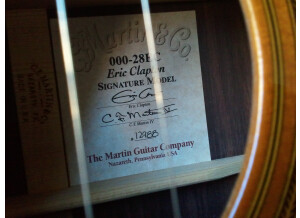 Martin & Co.
000-28EC
Eric Clapton
SIGNATURE MODEL
Eric Clapton
C. F. Martin IV
C. F. Martin IV
The Martin Guitar Company
Nazareth, Pennsylvania USA